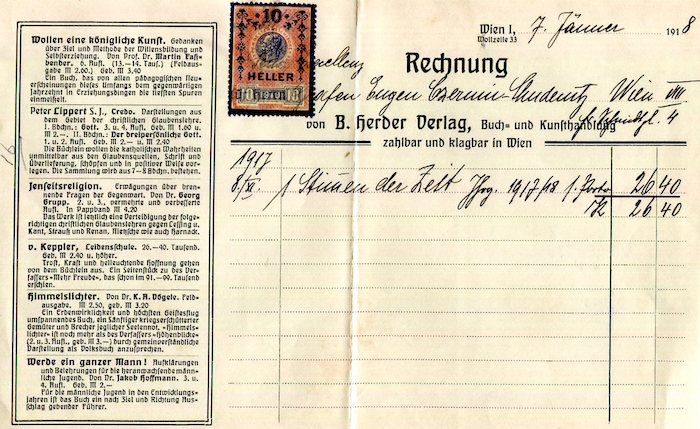 Wollen eine königliche Kunst. Gedanken
über Ziel und Methode der Willensbildung und
Selbsterziehung. Von Prof. Dr. Martin Faß-
bender. 6. Aufl. (13.—14. Taus.) (Feldaus-
gabe M 2.60.) Geb. M 3.40
Ein Buch, das von allen pädagogischen Neu-
erscheinungen dieses Umfangs dem gegenwärtigen
Jahrzehnt in Erziehungsdingen die tiefsten Spuren
einmeißelt.
Peter Lippert S. J., Credo. Darstellungen aus
dem Gebiet der christlichen Glaubenslehre.
1. Bdchn.: Gott. 3. u. 4. Aufl. Geb. M 1.60 u.
M 2.—. III. Bdchn.: Der dreipersönliche Gott.
1. u. 2. Aufl. Geb. M 2.— u. M 2.40
Die Büchlein wollen die katholischen Wahrheiten
unmittelbar aus den Glaubensquellen, Schrift und
Überlieferung, schöpfen und in positiver Weise vor-
legen. Die Sammlung wird aus 7—8 Bdchn. bestehen.
Jenseitsreligion. Erwägungen über bren-
nende Fragen der Gegenwart. Von Dr. Georg
Grupp. 2. u. 3., vermehrte und verbesserte
Aufl. In Pappband M 4.20
Das Werk ist letztlich eine Verteidigung der folge-
richtigen christlichen Glaubenslehren gegen Lessing u.
Kant, Strauß und Renan, Nietzsche wie auch Harnack.
v. Keppler, Leidensschule. 26.—40. Tausend.
Geb. M 2.40 u. höher.
Trost, Kraft und helleuchtende Hoffnung gehen
von dem Büchlein aus. Ein Seitenstück zu des Ver-
fassers »Mehr Freude«, das schon im 91.—99. Tausend
erschien.
Himmelslichter. Von Dr. K. A. Vögele. Feld-
ausgabe. M 2.50, geb. M 3.20
Ein Erdenwirklichkeit und höchsten Geistesflug
umspannendes Buch, ein Sänftiger kriegserschütterter
Gemüter und Brecher jeglicher Seelennot. »Himmels-
lichter« ist noch mehr als des Verfassers »Höhenblicke«
(2. u. 3. Aufl., geb. M 3.—) durch gemeinverständliche
Darstellung als Volksbuch anzusprechen.
Werde ein ganzer Mann! Aufklärungen
und Belehrungen für die heranwachsende männ-
liche Jugend. Von Dr. Jakob Hoffmann. 3. u.
4. Aufl. Geb. M 2.—
Für die männliche Jugend in den Entwicklungs-
jahren ist das Buch ein nach Ziel und Richtung Aus-
schlag gebender Führer.
10
HELLER
Wien I, 7. Jänner 1918
Wollzeile 33
Rechnung
Eugen Czernin-Chudenitz Wien VIII
von B. Herder Verlag, Buch- und Kunsthandlung
zahlbar und klagbar in Wien
1917
1 Stimmen der Zeit Jhrg. 1917/18 26 40
26 40